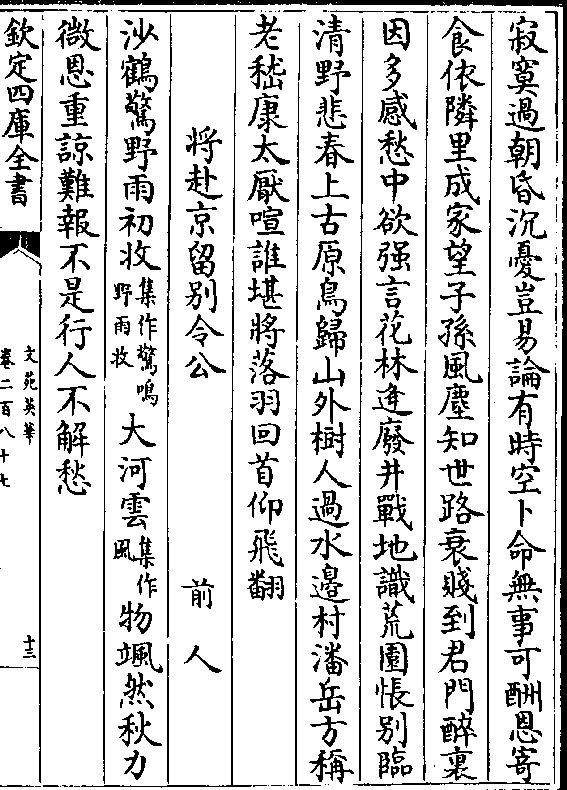 寂寞過朝昏沉憂豈易論有時空卜命無事可酬恩寄
食依隣里成家望子孫風塵知世路衰賤到君門醉裏
因多感愁中欲强言花林逢廢井戰地識荒園悵别臨
清野悲春上古原鳥歸山外樹人過水邊村潘岳方稱
老嵇康太厭喧誰堪將落羽回首仰飛翻
將赴京留别令公　前人
沙鶴驚野雨初收集作驚鳴野雨收大河雲集作風物颯然秋力
微恩重諒難報不是行人不解愁
欽定四庫全書
文苑英華
卷二百八十七
十三